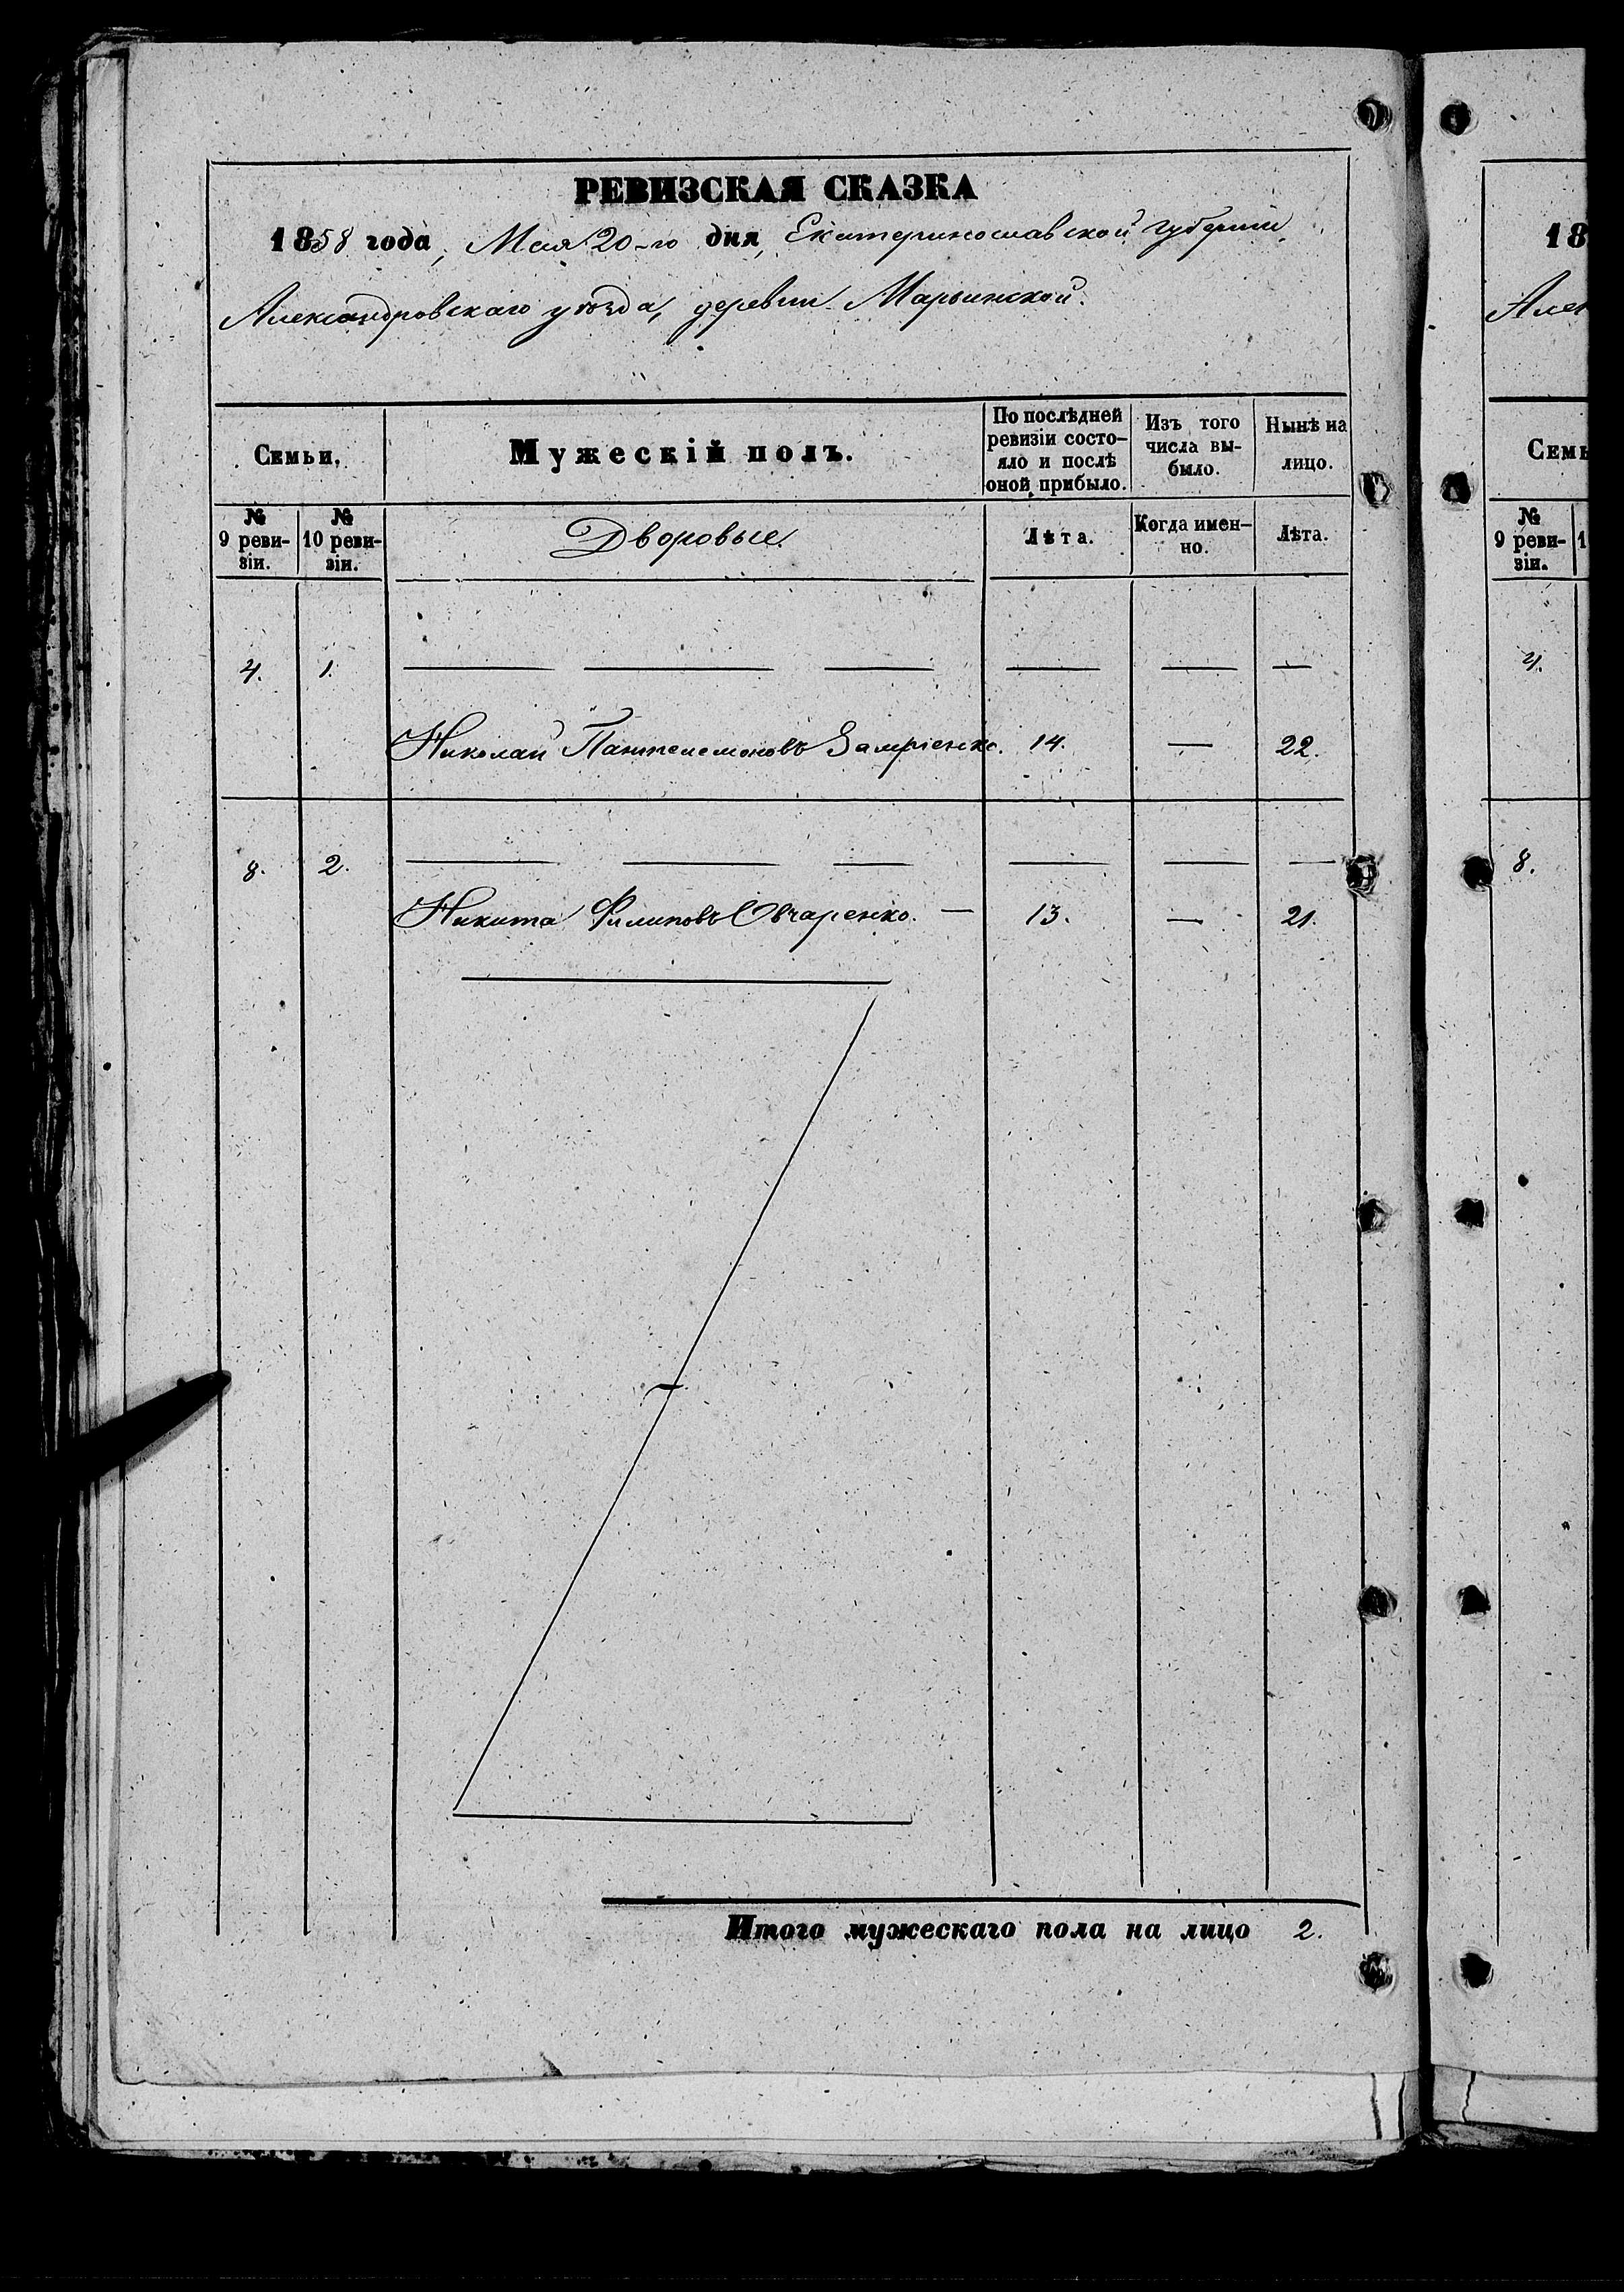 РЕВИЗСКАЯ СКАЗКА
1858 года, Мая 20-го дня, Екатеринославской губернии,
Александровскаго уѣзда, деревни Марьинской.
Семьи,
Мужескій полъ.
По послѣдней
ревизіи состо-
яло и послѣ
оной прибыло.
Изъ того
числа вы-
было.
Нынѣ на
лицо.
№
9 реви-
зіи.
№
10 реви-
зіи.
Дворовые.
Лѣта.
Когда имен-
но.
Лѣта.
4. 1. — — — — — —
Николай Пантелемоновъ 14. — 22.
8. 2. — — — — — —
Никита Филиповъ Овчаренко. — 13. — 21.
Итого мужескаго пола на лицо 2.
18
Алек
Семь
№
9 реви-
зіи.
1
4.
8.